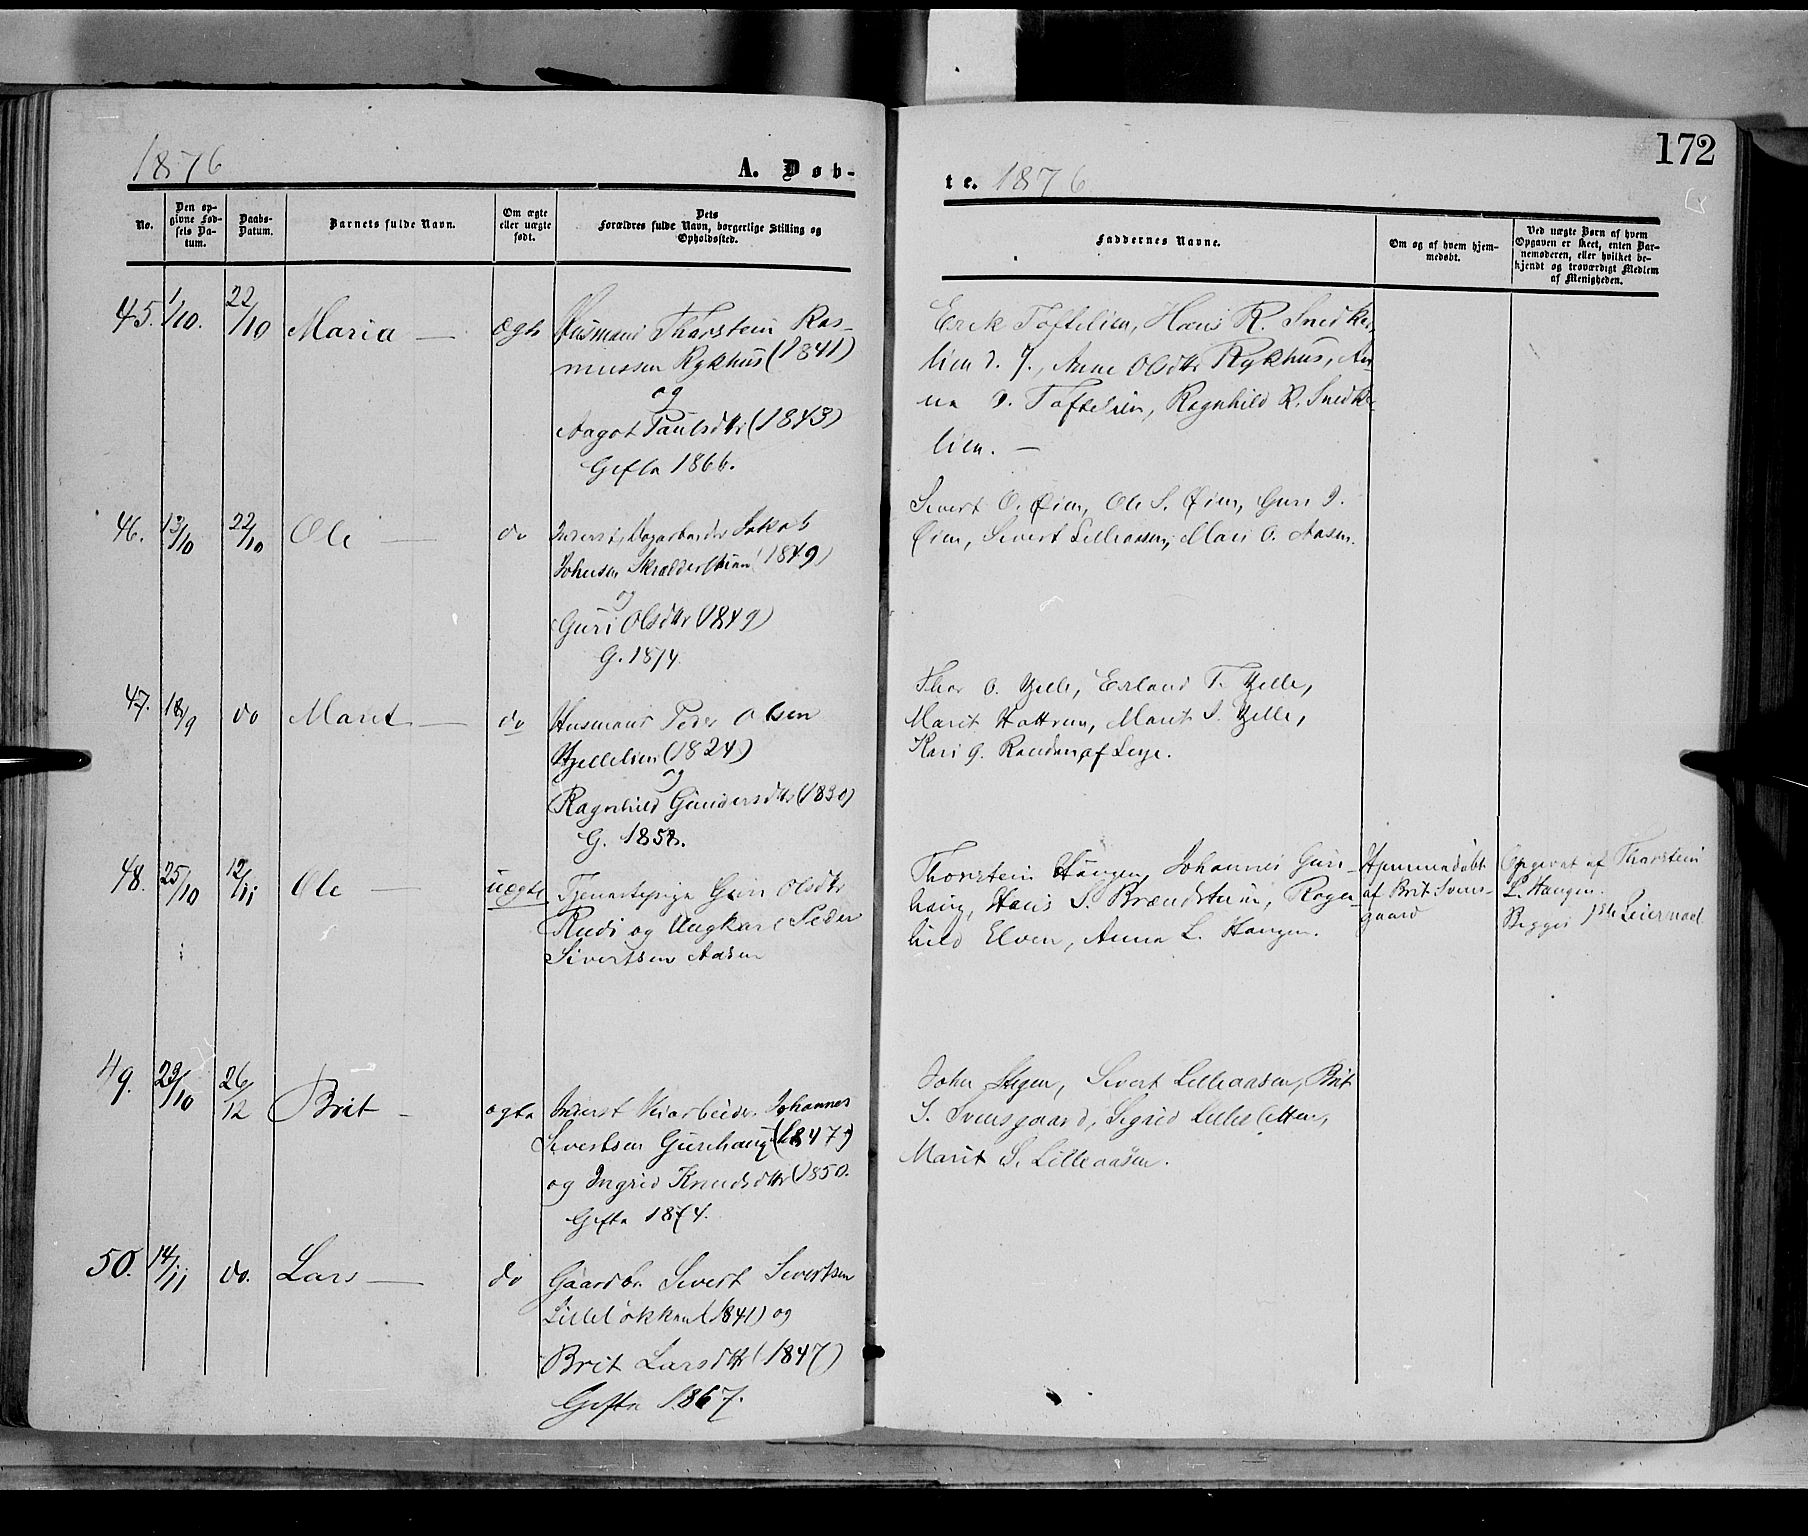 172
1876
A. Døb-
te. 1876
No.
Den op-
givne Fød-
sels Da-
tum.
Daabs-
Datum.
Barnets fulde Navn.
Om ægte
eller uægte
født.
Dets
Forældres fulde Navn, borgerlige Stilling og
Opholdssted.
Faddernes Navne.
Om og af hvem hjem-
medøbt.
Ved uægte Børn af hvem
Opgaven er skeet, enten Bar-
nemoderen, eller hvilket be-
kjendt og troværdigt Medlem
af Menigheden.
45. 1/10. 22/10 Maria — ægte
Husmand Thorstein Ras-
mussen Rykhus (1841)
og
Aagot Paulsdtr (1843)
Gifte 1866.
Erik Toftelien, Hans R. Snedke-
lien d. Y., Anne Olsdtr Rykhus, An-
na O. Toftelien, Ragnhild R. Snedke-
lien. —
46. 13/10 22/10 Ole — do
Inderst, Dagarbeider Jakob
Johnsen (1849)
og
Guri Olsdtr (1849)
G. 1874.
Sivert O. Øien, Ole S. Øien, Guri
Øien, Sivert Lilleaasen, Mari O. Aasen.
47. 18/9 do Marit — do
Husmand Peder Olsen
Hjellelien (1824)
og
Ragnhild Gundersdtr (1830)
G. 1858.
Thor O. Hjelle, Erland T. Hjelle,
Marit Hattrem, Marit S. Hjelle,
Kari G. Randen, af Lesje.
48. 25/10 12/11 Ole — uægte
Tjenestepige Guri Olsdtr
Rudi og Ungkarl Peder
Sivertsen Aasen
Thorstein Haugen, Johannes Guri-
haug, Hans S. Brændstuen, Ragn-
hild Elven, Anna L. Haugen.
Hjemmedøbt
af Brit Svens-
gaard
Opgivet af Thorstein
L. Haugen.
Begges 1ste Leiermaal
49. 29/10 26/12 Brit — ægte
Inderst Veiarbeider Johannes
Sivertsen Gurihaug (1847)
og Ingrid Knudsdtr (1850.
Gifte 1874.
John Stegen, Sivert Lilleaasen, Brit
S. Svensgaard, Sigrid Lillesletten,
Marit S. Lilleaasen.
50. 14/11 do. Lars — do
Gaardbr. Sivert Sivertsen
Lilleløkken (1841) og
Brit Larsdtr (1847)
Gifte 1867.